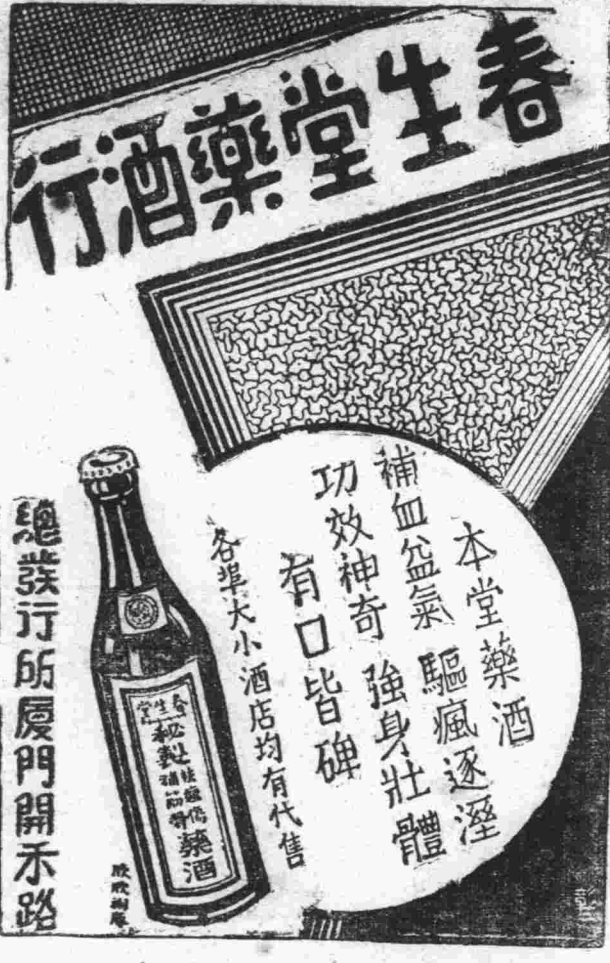 春生堂藥酒行
本堂藥酒
補血益氣 驅瘋逐溼
功效神奇 強身壯體
有口皆碑
各埠大小酒店均有代售
春生堂
秘製
補筋骨
藥酒
總發行所廈門開禾路